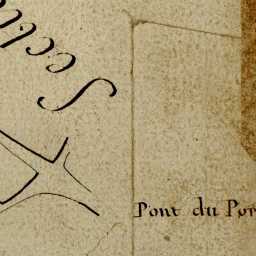 Secti
Pont du Por